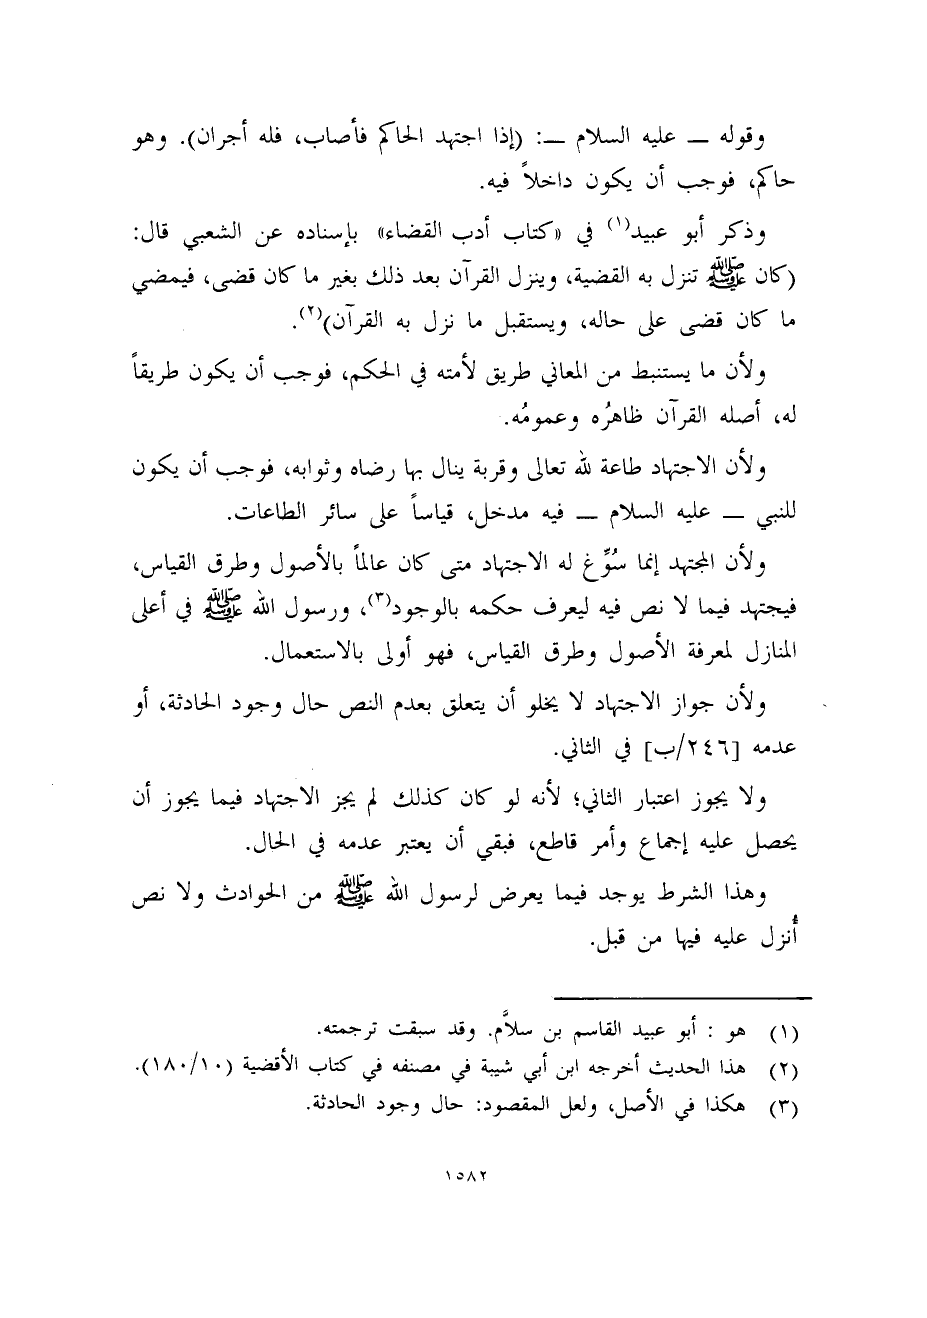 وقوله — عليه السلام —: (إذا اجتهد الحاكم فأصاب، فله أجران). وهو
حاكم، فوجب أن يكون داخلاً فيه.
وذكر أبو عبيد(١) في «كتاب أدب القضاء» بإسناده عن الشعبي قال:
(كان ﷺ تنزل به القضية، وينزل القرآن بعد ذلك بغير ما كان قضى، فيمضي
ما كان قضى على حاله، ويستقبل ما نزل به القرآن)(٢).
ولأن ما يستنبط من المعاني طريق لأمته في الحكم، فوجب أن يكون طريقاً
له، أصله القرآن ظاهرُه وعمومُه.
ولأن الاجتهاد طاعة لله تعالى وقربة ينال بها رضاه وثوابه، فوجب أن يكون
للنبي — عليه السلام — فيه مدخل، قياساً على سائر الطاعات.
ولأن المجتهد إنما سُوِّغ له الاجتهاد متى كان عالماً بالأصول وطرق القياس،
فيجتهد فيما لا نص فيه ليعرف حكمه بالوجود(٣)، ورسول الله ﷺ في أعلى
المنازل لمعرفة الأصول وطرق القياس، فهو أولى بالاستعمال.
ولأن جواز الاجتهاد لا يخلو أن يتعلق بعدم النص حال وجود الحادثة، أو
عدمه [٢٤٦/ب] في الثاني.
ولا يجوز اعتبار الثاني؛ لأنه لو كان كذلك لم يجز الاجتهاد فيما يجوز أن
يحصل عليه إجماع وأمر قاطع، فبقي أن يعتبر عدمه في الحال.
وهذا الشرط يوجد فيما يعرض لرسول الله ﷺ من الحوادث ولا نص
أُنزل عليه فيها من قبل.
(١) هو : أبو عبيد القاسم بن سلاَّم. وقد سبقت ترجمته.
(٢) هذا الحديث أخرجه ابن أبي شيبة في مصنفه في كتاب الأقضية (١٨٠/١٠).
(٣) هكذا في الأصل، ولعل المقصود: حال وجود الحادثة.
١٥٨٢